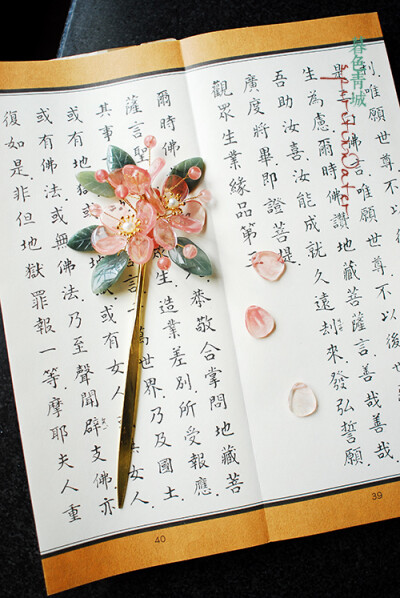 暮色青城
利.唯願世尊.不以
是 言.唯願世尊.不以後
生為慮.爾時佛讚地藏菩薩言善哉善哉.
吾助汝喜.汝能成就久遠劫來.發弘誓願.
廣度將畢.即證菩提.
觀眾生業緣品第三
39
爾時佛 恭敬合掌問地藏菩
薩言 生.造業差別.所受報應.
其事 言 萬世界.乃及國土.
或有地 或有女人. 女人.
或有佛法.或無佛法.乃至聲聞辟支佛.亦
復如是.非但地獄罪報一等.摩耶夫人重
40